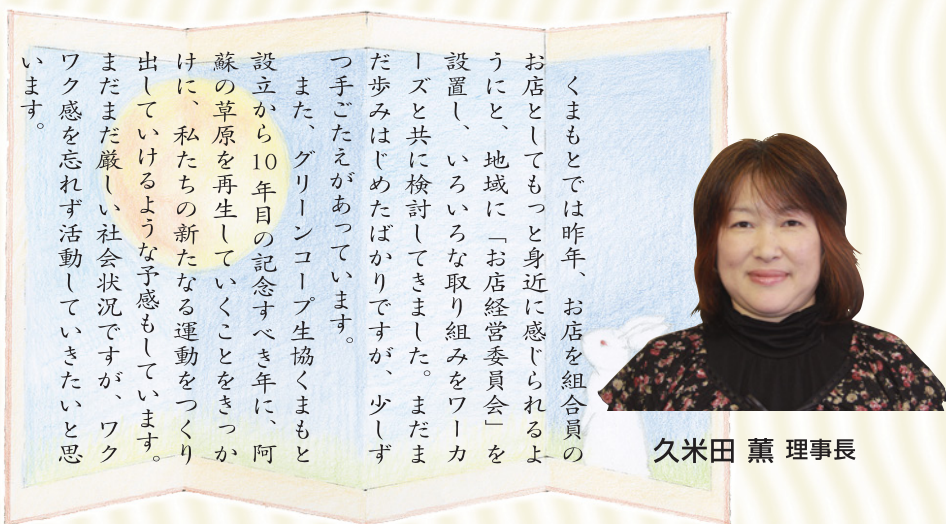 くまもとでは昨年、お店を組合員の
お店としてもっと身近に感じられるよ
うにと、地域に「お店経営委員会」を
設置し、いろいろな取り組みをワーカ
ーズと共に検討してきました。まだま
だ歩みはじめたばかりですが、少しず
つ手ごたえがあっています。
また、グリーンコープ生協くまもと
設立から10年目の記念すべき年に、阿
蘇の草原を再生していくことをきっか
けに、私たちの新たなる運動をつくり
出していけるような予感もしています。
まだまだ厳しい社会状況ですが、ワク
ワク感を忘れず活動していきたいと思
います。
久米田 薫 理事長